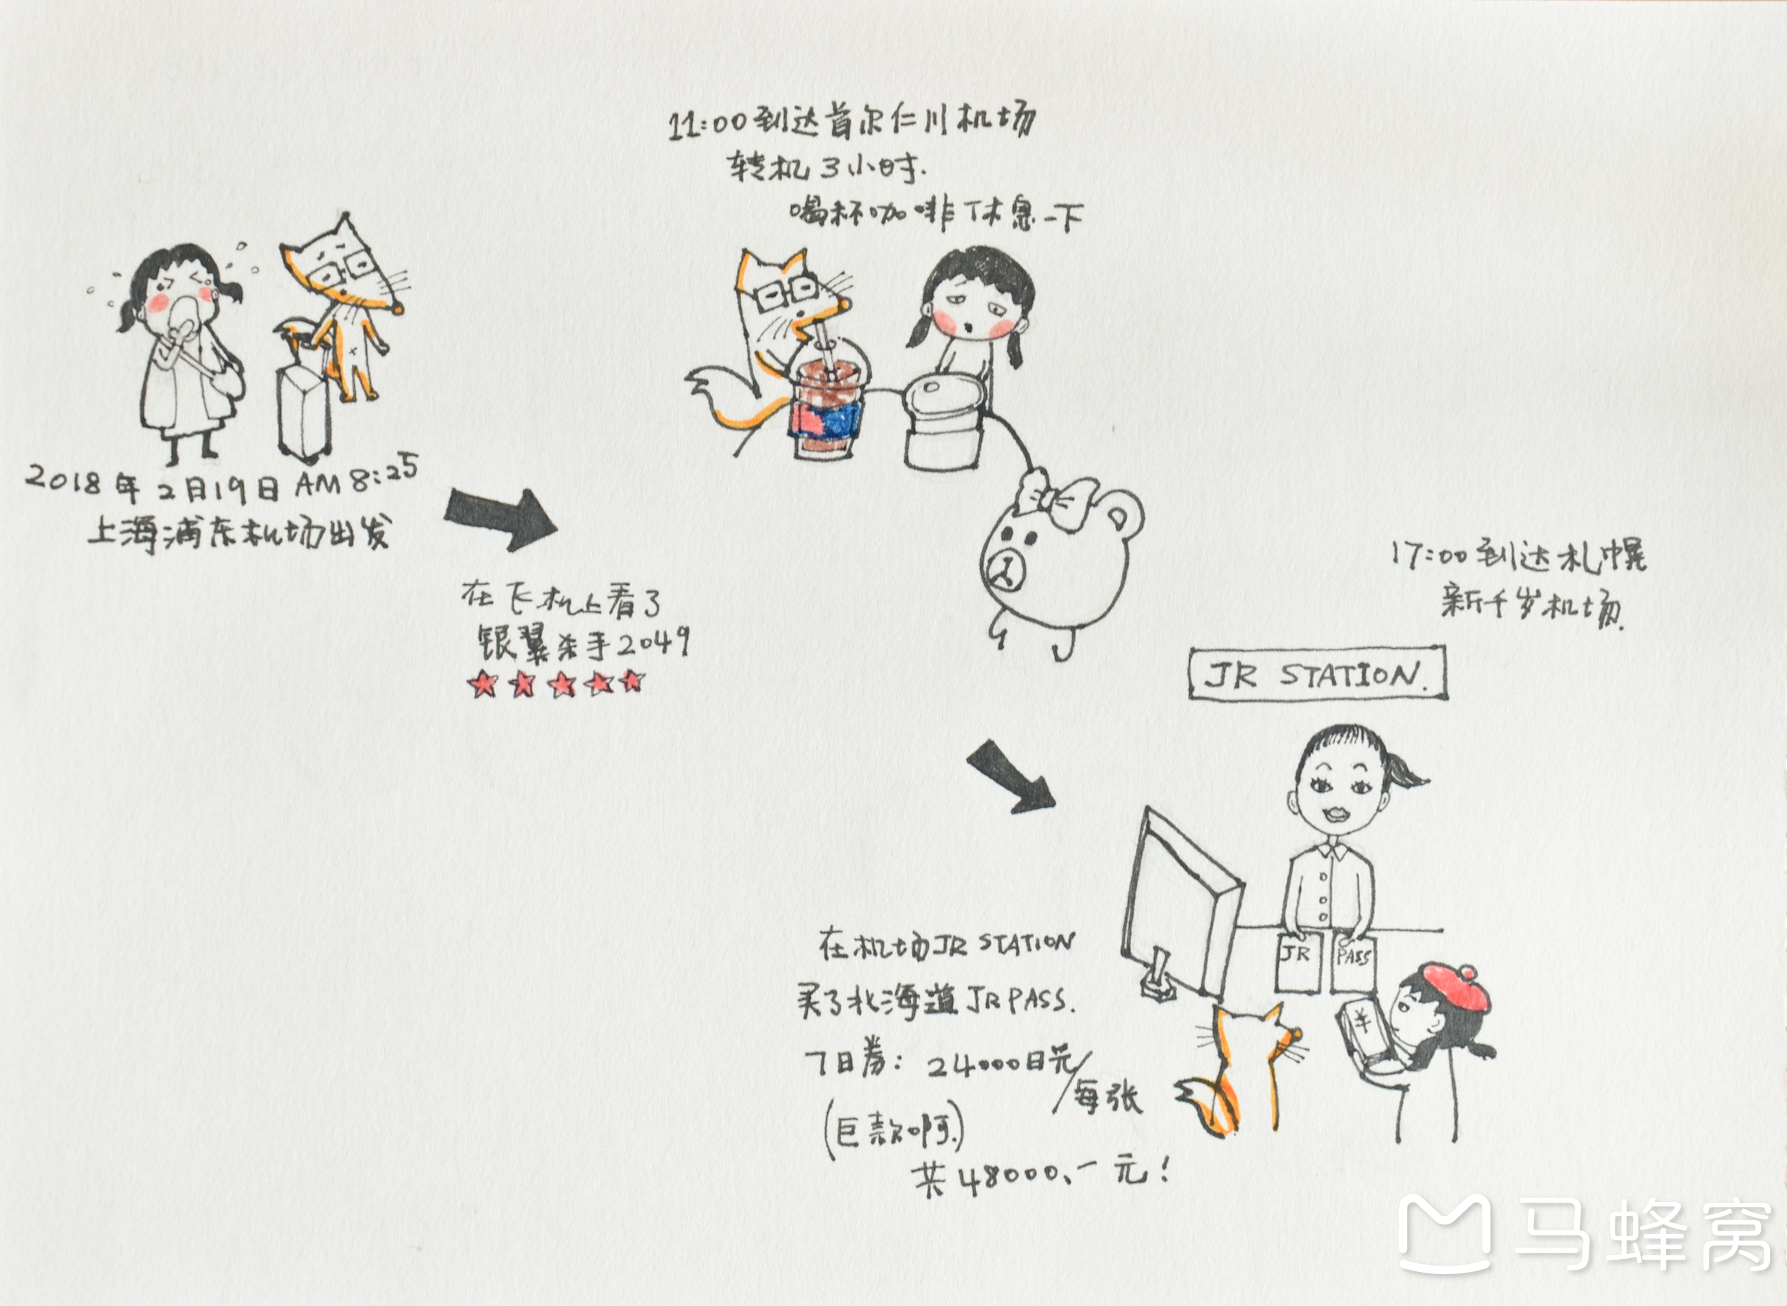 11:00到达首尔仁川机场
转机3小时.
喝杯咖啡休息一下
2018年2月19日AM 8:25
上海浦东机场出发
在飞机上看了
银翼杀手2049
17:00到达札幌
新千岁机场.
JR STATION.
JR
PASS
¥
在机场JR STATION
买了北海道JR PASS.
7日券: 24000日元/每张
(巨款啊.)
共48000、一元!
马蜂窝